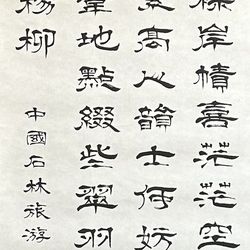 襟岸幘喜茫茫空
素高人韻士何妨
葦地點綴些翠羽
楊柳
中國石林旅游